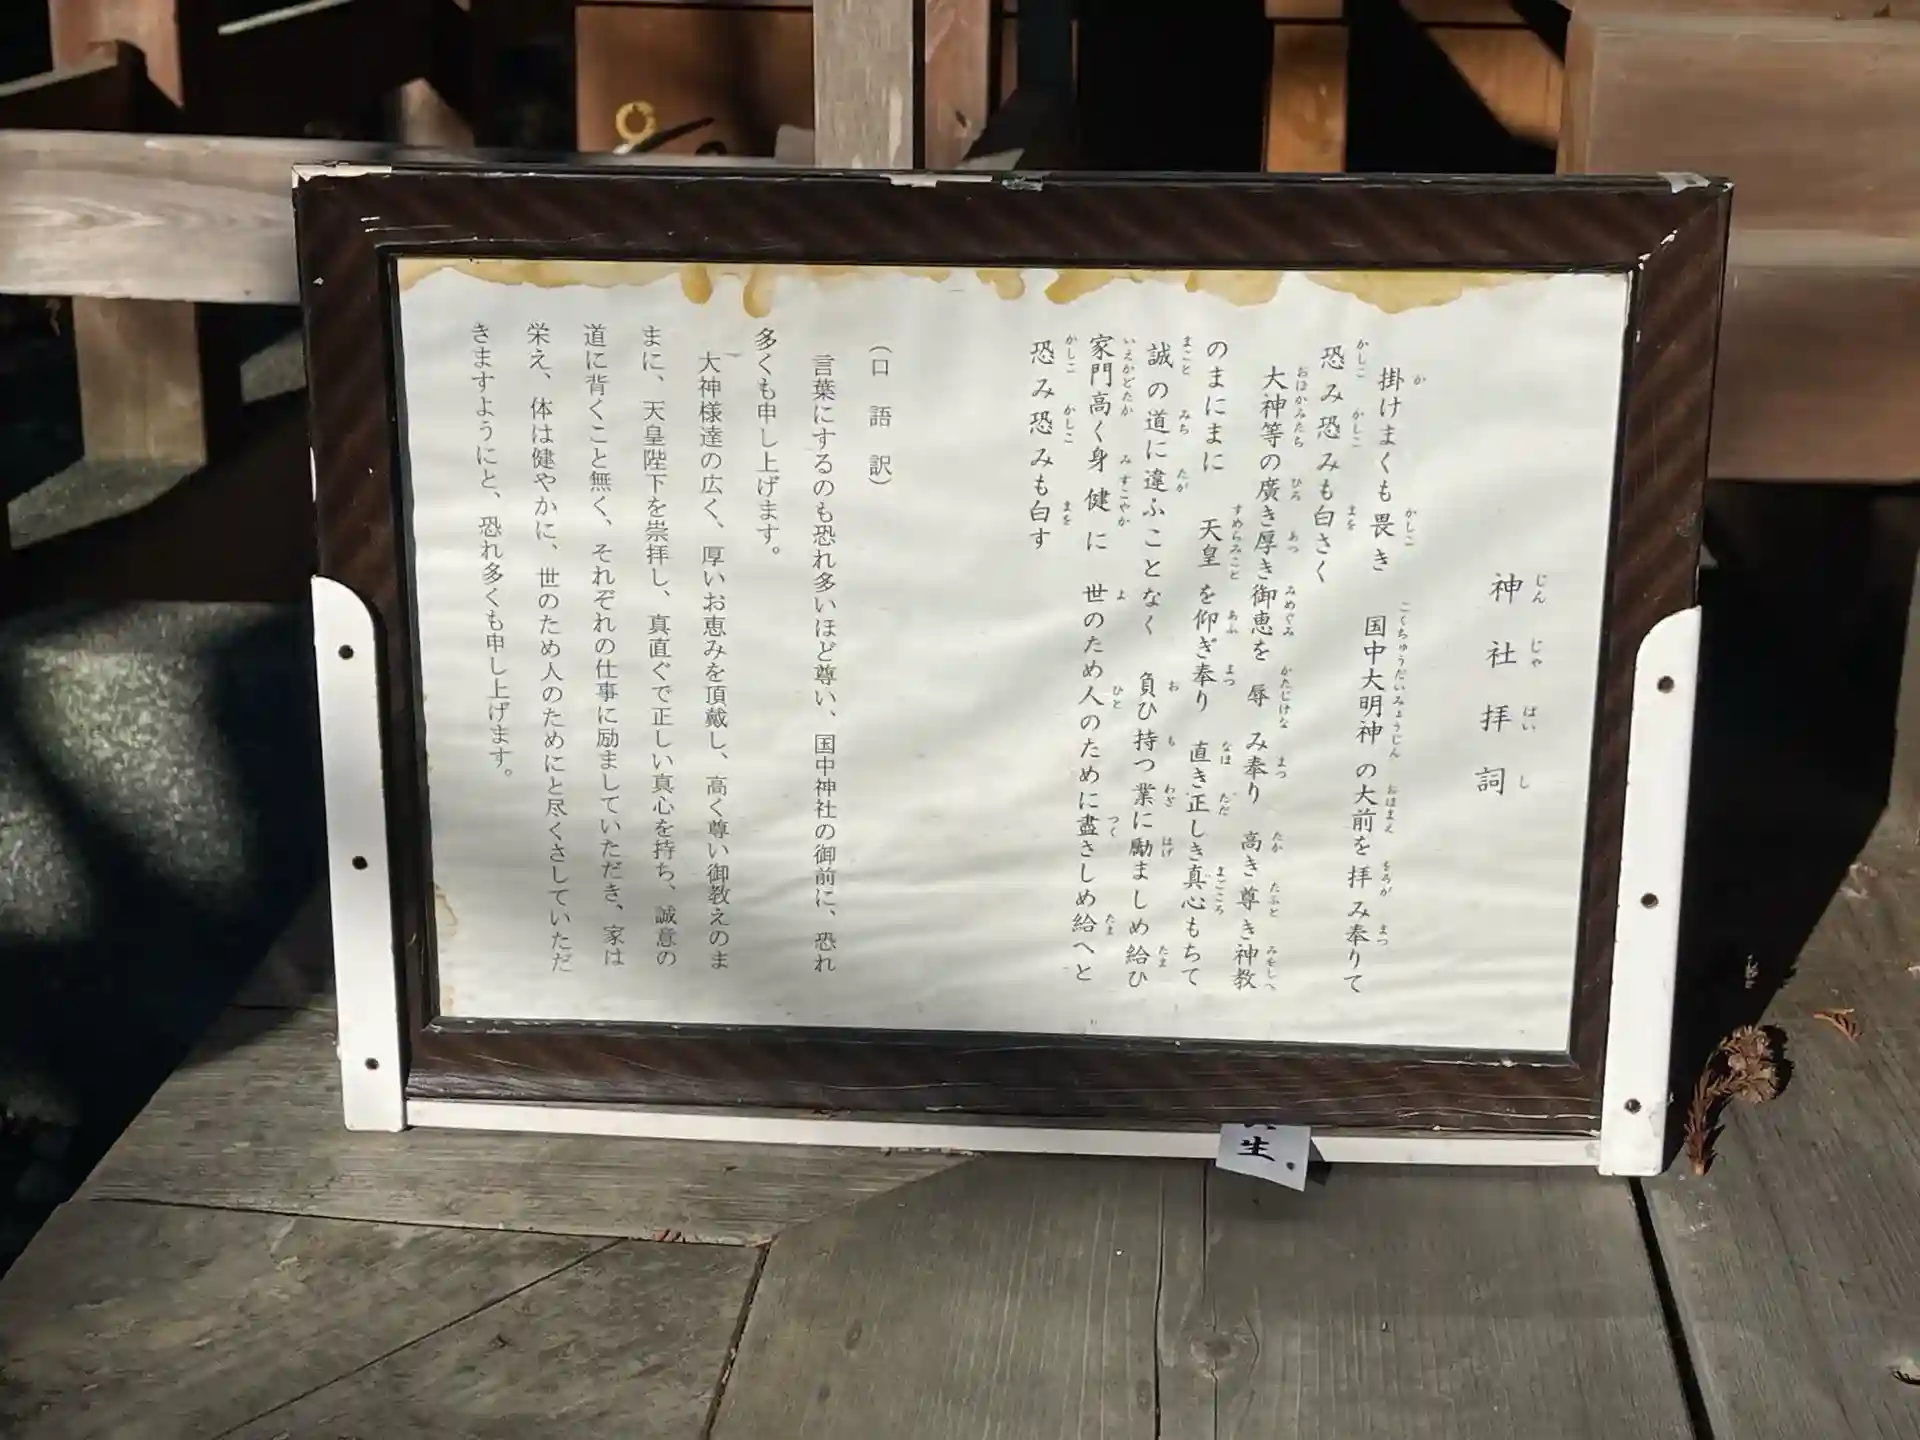 神社拝詞
掛けまくも畏き　国中大明神の大前を拝み奉りて
恐み恐みも白さく
大神等の廣き厚き御恵を辱み奉り　高き尊き神教
のまにまに　天皇を仰ぎ奉り　直き正しき真心もちて
誠の道に違ふことなく　負ひ持つ業に励ましめ給ひ
家門高く身健に　世のため人のために盡さしめ給へと
恐み恐みも白す
（口語訳）
言葉にするのも恐れ多いほど尊い、国中神社の御前に、恐れ
多くも申し上げます。
大神様達の広く、厚いお恵みを頂戴し、高く尊い御教えのま
まに、天皇陛下を崇拝し、真直ぐで正しい真心を持ち、誠意の
道に背くこと無く、それぞれの仕事に励ましていただき、家は
栄え、体は健やかに、世のため人のためにと尽くさしていただ
きますようにと、恐れ多くも申し上げます。
生